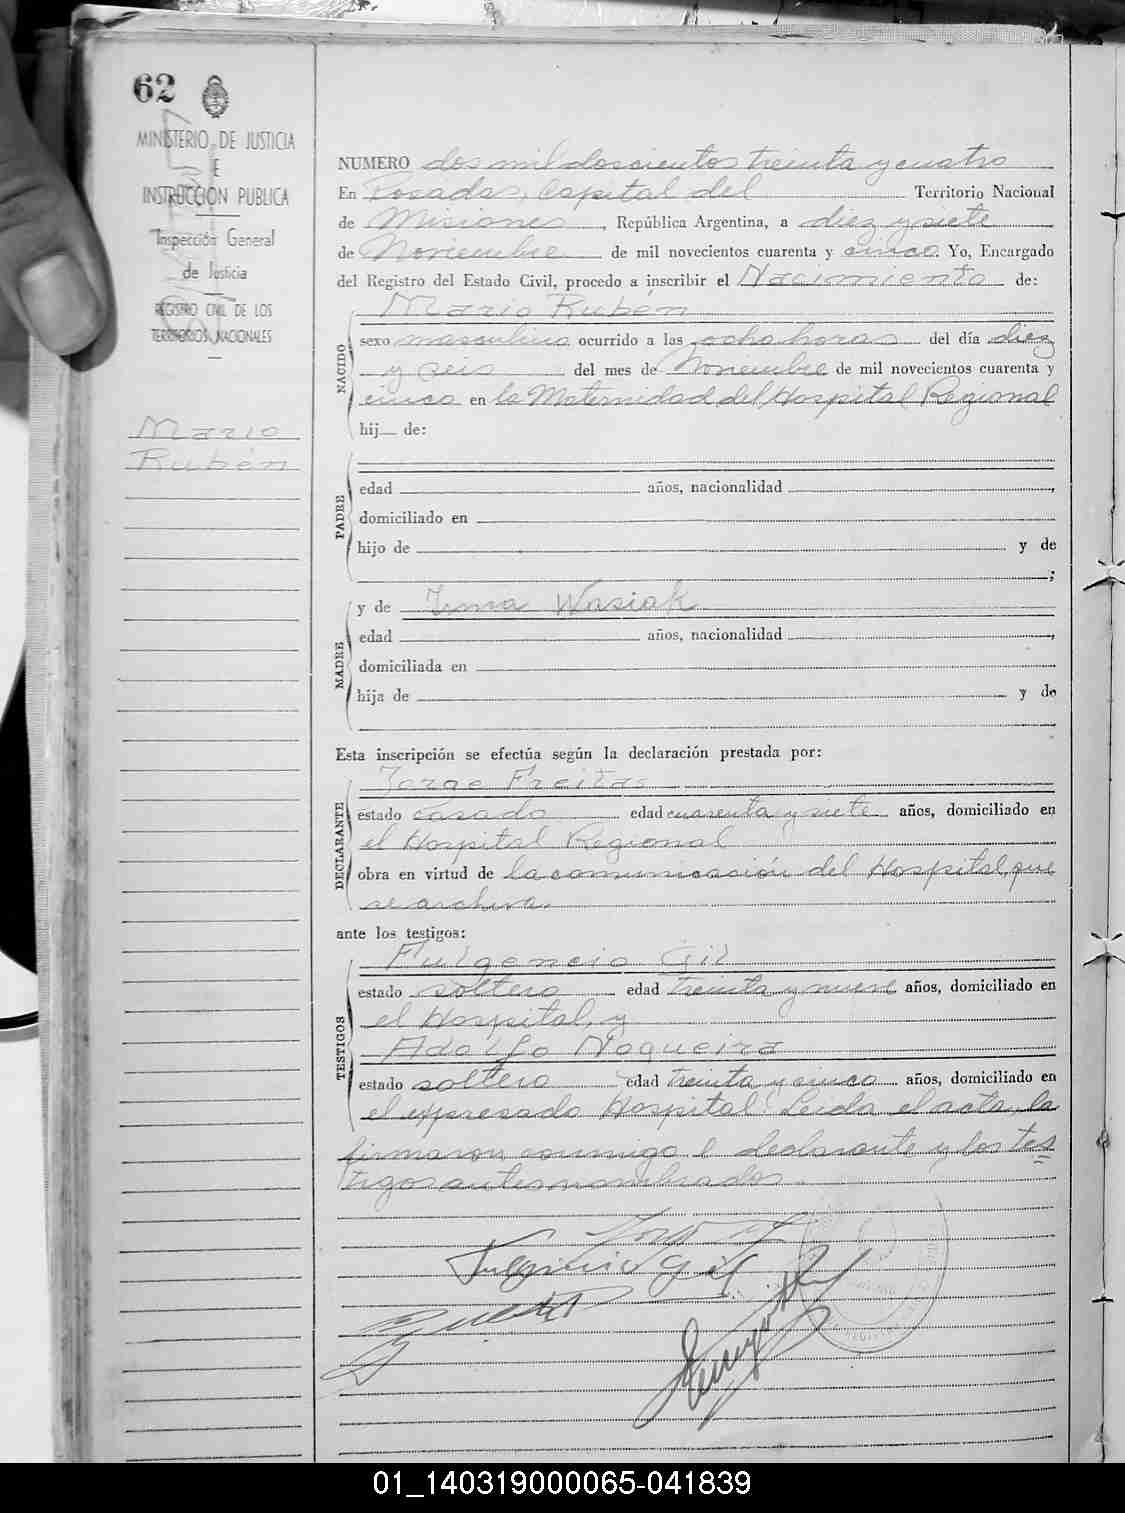 62
MINISTERIO DE JUSTICIA
E
INSTRUCCION PUBLICA
Inspección General
de Justicia
REGISTRO CIVIL DE LOS
TERRITORIOS NACIONALES
Mario
Rubén
NUMERO dos mil doscientos treinta y cuatro
En Posadas, Capital del Territorio Nacional
de Misiones, República Argentina, a diez y siete
de Noviembre de mil novecientos cuarenta y cinco. Yo, Encargado
del Registro del Estado Civil, procedo a inscribir el Nacimiento de:
NACIDO
Mario Rubén
sexo masculino ocurrido a las ocho horas del día diez
y seis del mes de Noviembre de mil novecientos cuarenta y
cinco en la Maternidad del Hospital Regional
hij de:
PADRE
edad años, nacionalidad ,
domiciliado en
hijo de y de
;
MADRE
y de Irma Wasiak
edad años, nacionalidad ,
domiciliada en
hija de y de
Esta inscripción se efectúa según la declaración prestada por:
DECLARANTE
Jorge Freitas
estado casado edad cuarenta y siete años, domiciliado en
el Hospital Regional
obra en virtud de la comunicación del Hospital, que
se archiva.
ante los testigos:
TESTIGOS
Fulgencio Gil
estado soltero edad treinta y nueve años, domiciliado en
el Hospital, y
Adolfo Nogueira
estado soltero edad treinta y cinco años, domiciliado en
el expresado Hospital. Leida el acta, la
firmaron conmigo el declarante y los tes
tigos antes nombrados.
Fulgencio Gil
01_140319000065-041839